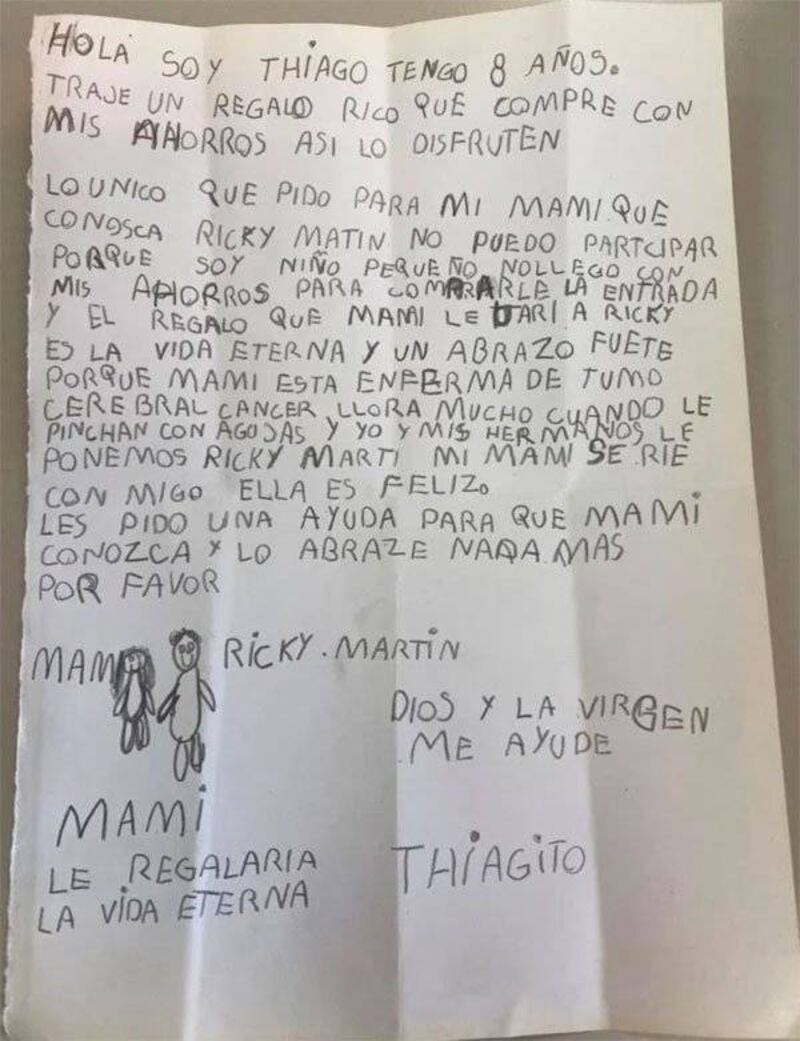 HOLA SOY THIAGO TENGO 8 AÑOS.
TRAJE UN REGALO RICO QUE COMPRE CON
MIS AHORROS ASI LO DISFRUTEN
LO UNICO QUE PIDO PARA MI MAMI QUE
CONOSCA RICKY MATIN NO PUEDO PARTCIPAR
PORQUE SOY NIÑO PEQUEÑO NOLLEGO CON
MIS AHORROS PARA COMPRARLE LA ENTRADA
Y EL REGALO QUE MAMI LE DARI A RICKY
ES LA VIDA ETERNA Y UN ABRAZO FUETE
PORQUE MAMI ESTA ENFERMA DE TUMO
CEREBRAL CANCER LLORA MUCHO CUANDO LE
PINCHAN CON AGUJAS Y YO Y MIS HERMANOS LE
PONEMOS RICKY MARTI MI MAMI SE RIE
CON MIGO ELLA ES FELIZ.
LES PIDO UNA AYUDA PARA QUE MAMI
CONOZCA Y LO ABRAZE NADA MAS
POR FAVOR
MAMI RICKY. MARTIN
DIOS Y LA VIRGEN
ME AYUDE
MAMI
LE REGALARIA
LA VIDA ETERNA
THIAGITO